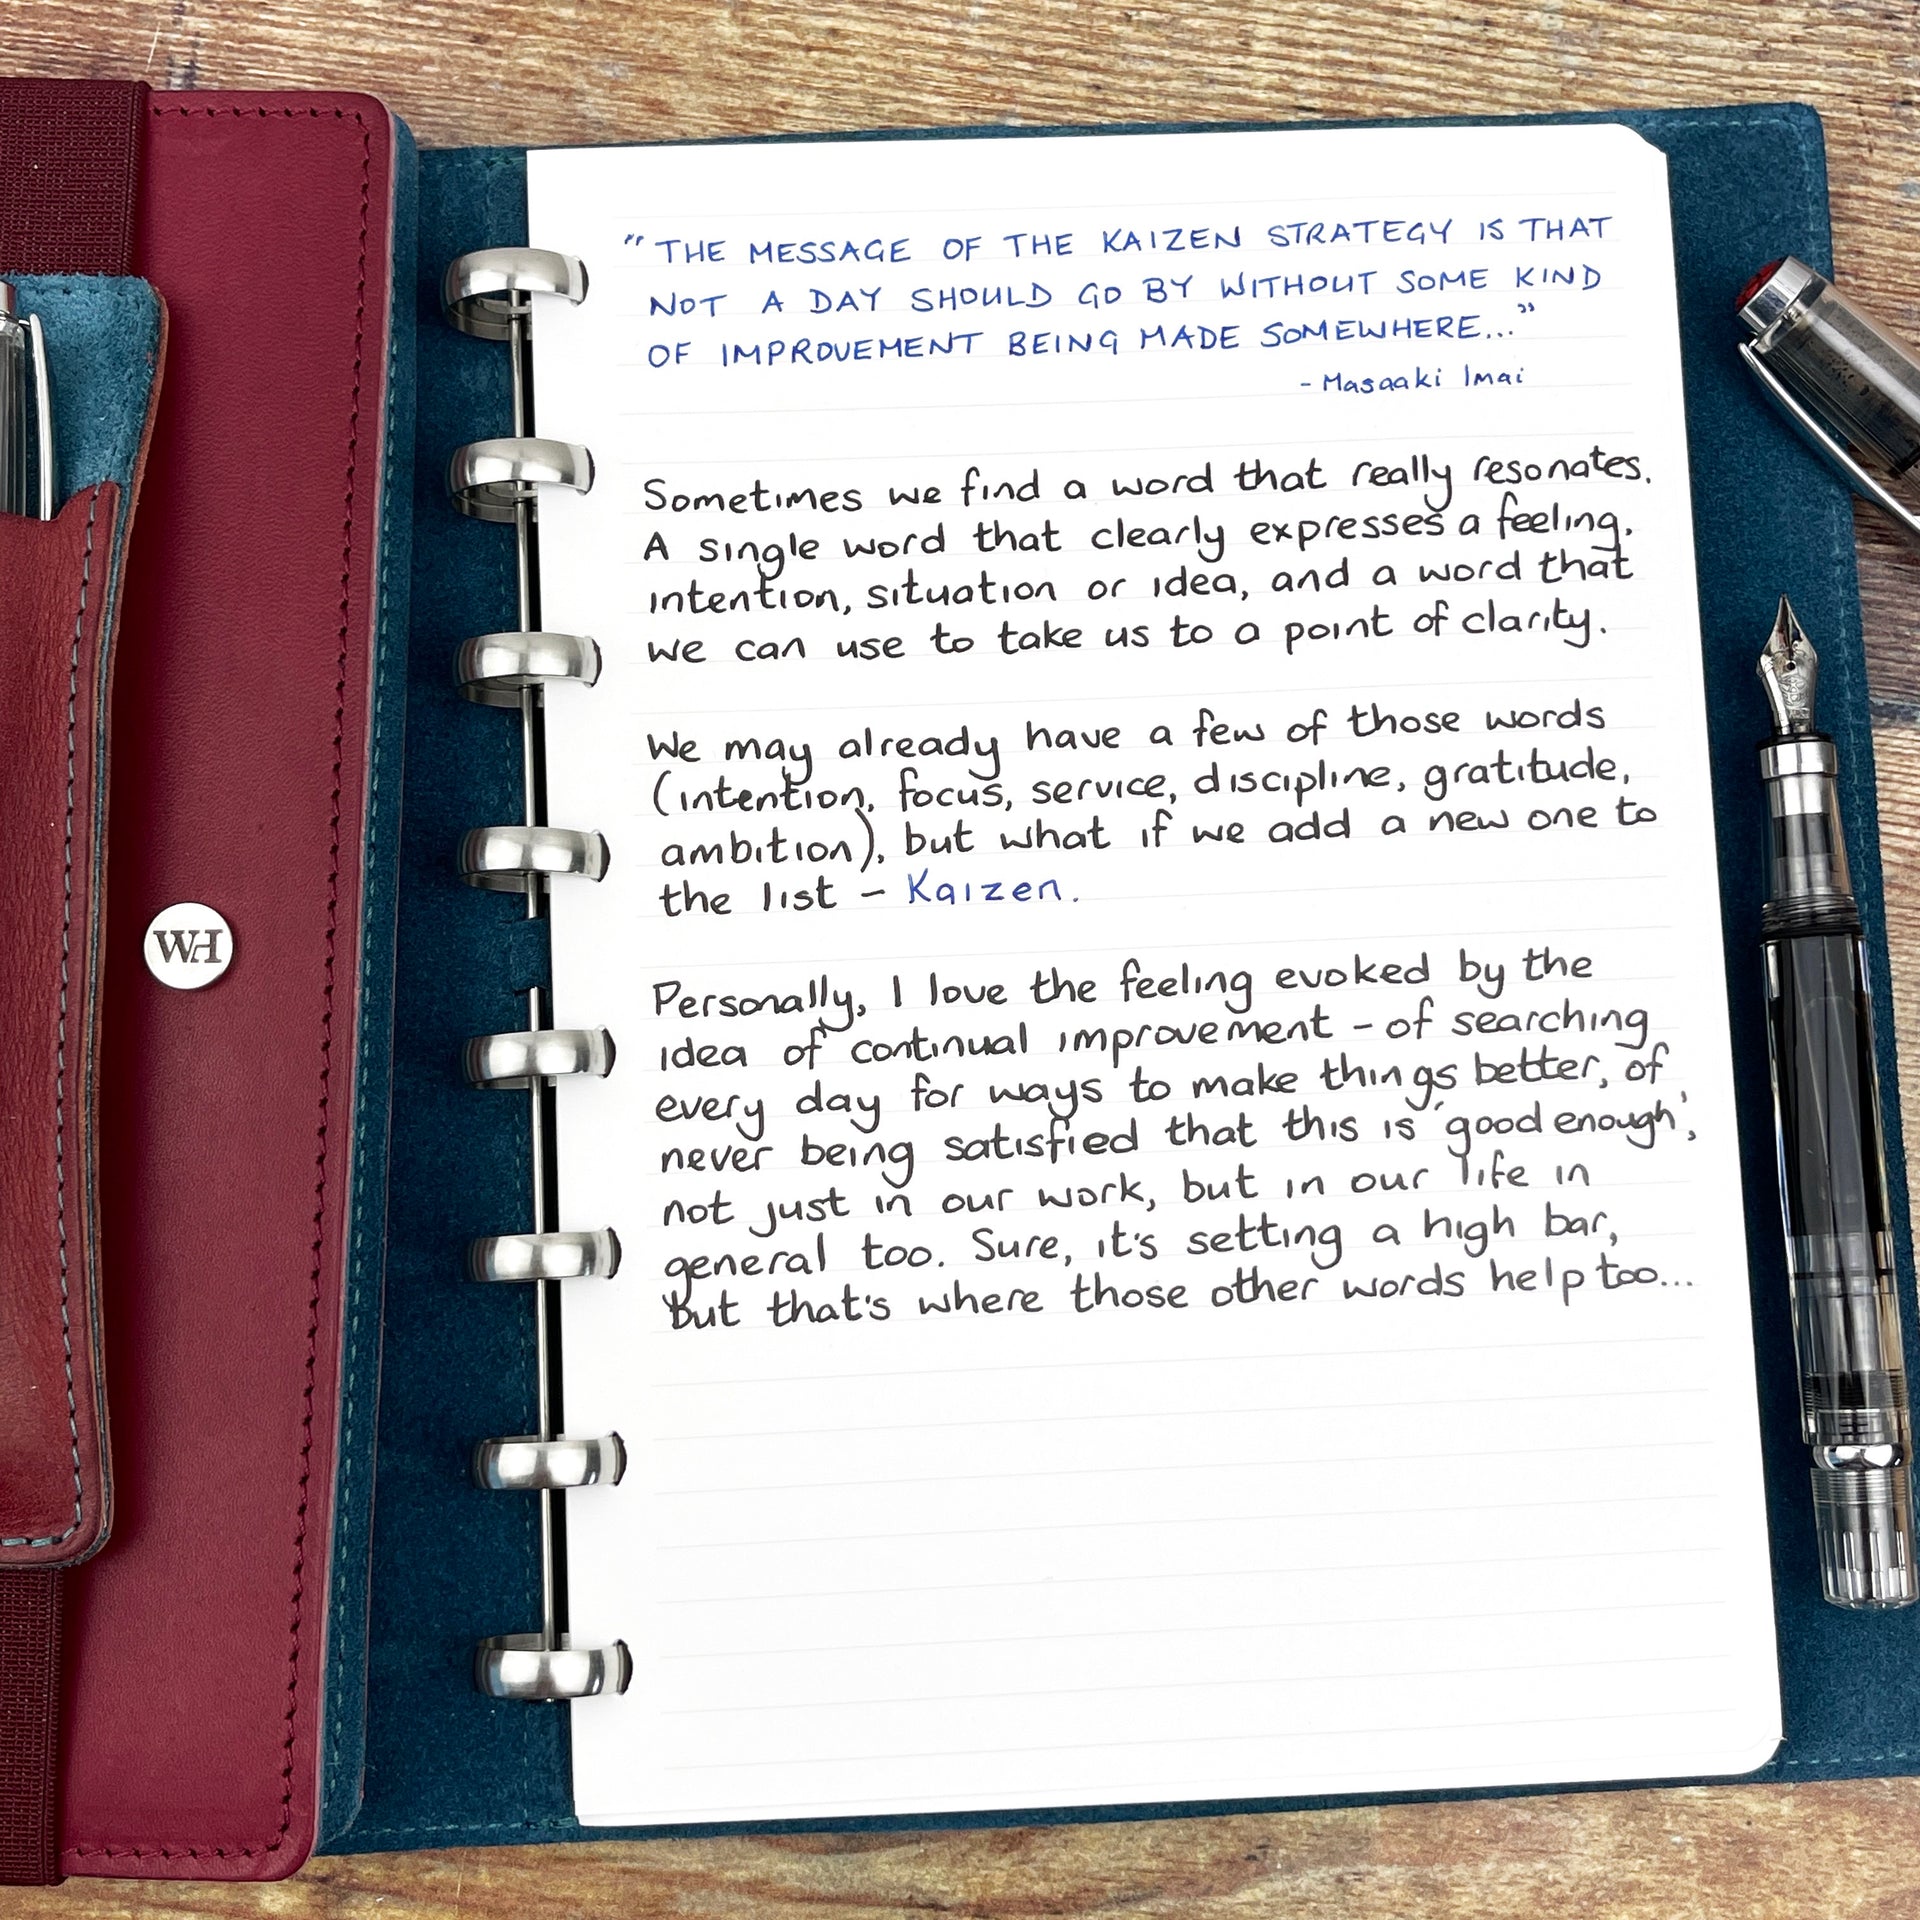 WH
"THE MESSAGE OF THE KAIZEN STRATEGY IS THAT
NOT A DAY SHOULD GO BY WITHOUT SOME KIND
OF IMPROVEMENT BEING MADE SOMEWHERE..."
- Masaaki Imai
Sometimes we find a word that really resonates.
A single word that clearly expresses a feeling,
intention, situation or idea, and a word that
we can use to take us to a point of clarity.
We may already have a few of those words
(intention, focus, service, discipline, gratitude,
ambition), but what if we add a new one to
the list - Kaizen.
Personally, I love the feeling evoked by the
idea of continual improvement - of searching
every day for ways to make things better, of
never being satisfied that this is 'good enough',
not just in our work, but in our life in
general too. Sure, it's setting a high bar,
but that's where those other words help too...